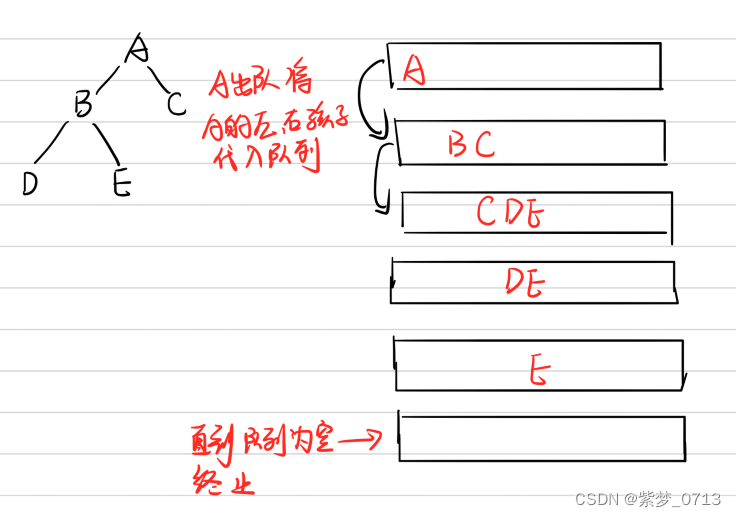 A
B
C
D
E
A出队将
A的左、右孩子
代入队列
A
B C
C D E
D E
E
直到队列为空
终止
CSDN @紫梦_0713